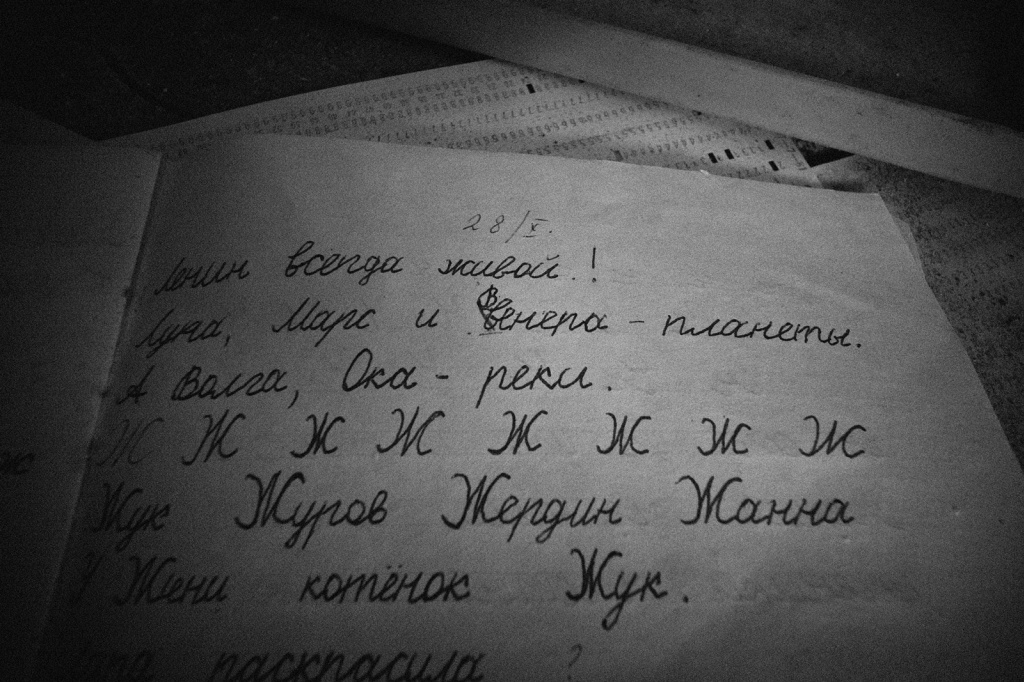 28/X.
Ленин всегда живой!
Луна, Марс и Венера - планеты.
А Волга, Ока - реки.
Ж Ж Ж Ж Ж Ж Ж Ж
Жук Журов Жердин Жанна
У Жени котёнок Жук.
раскрасила ?